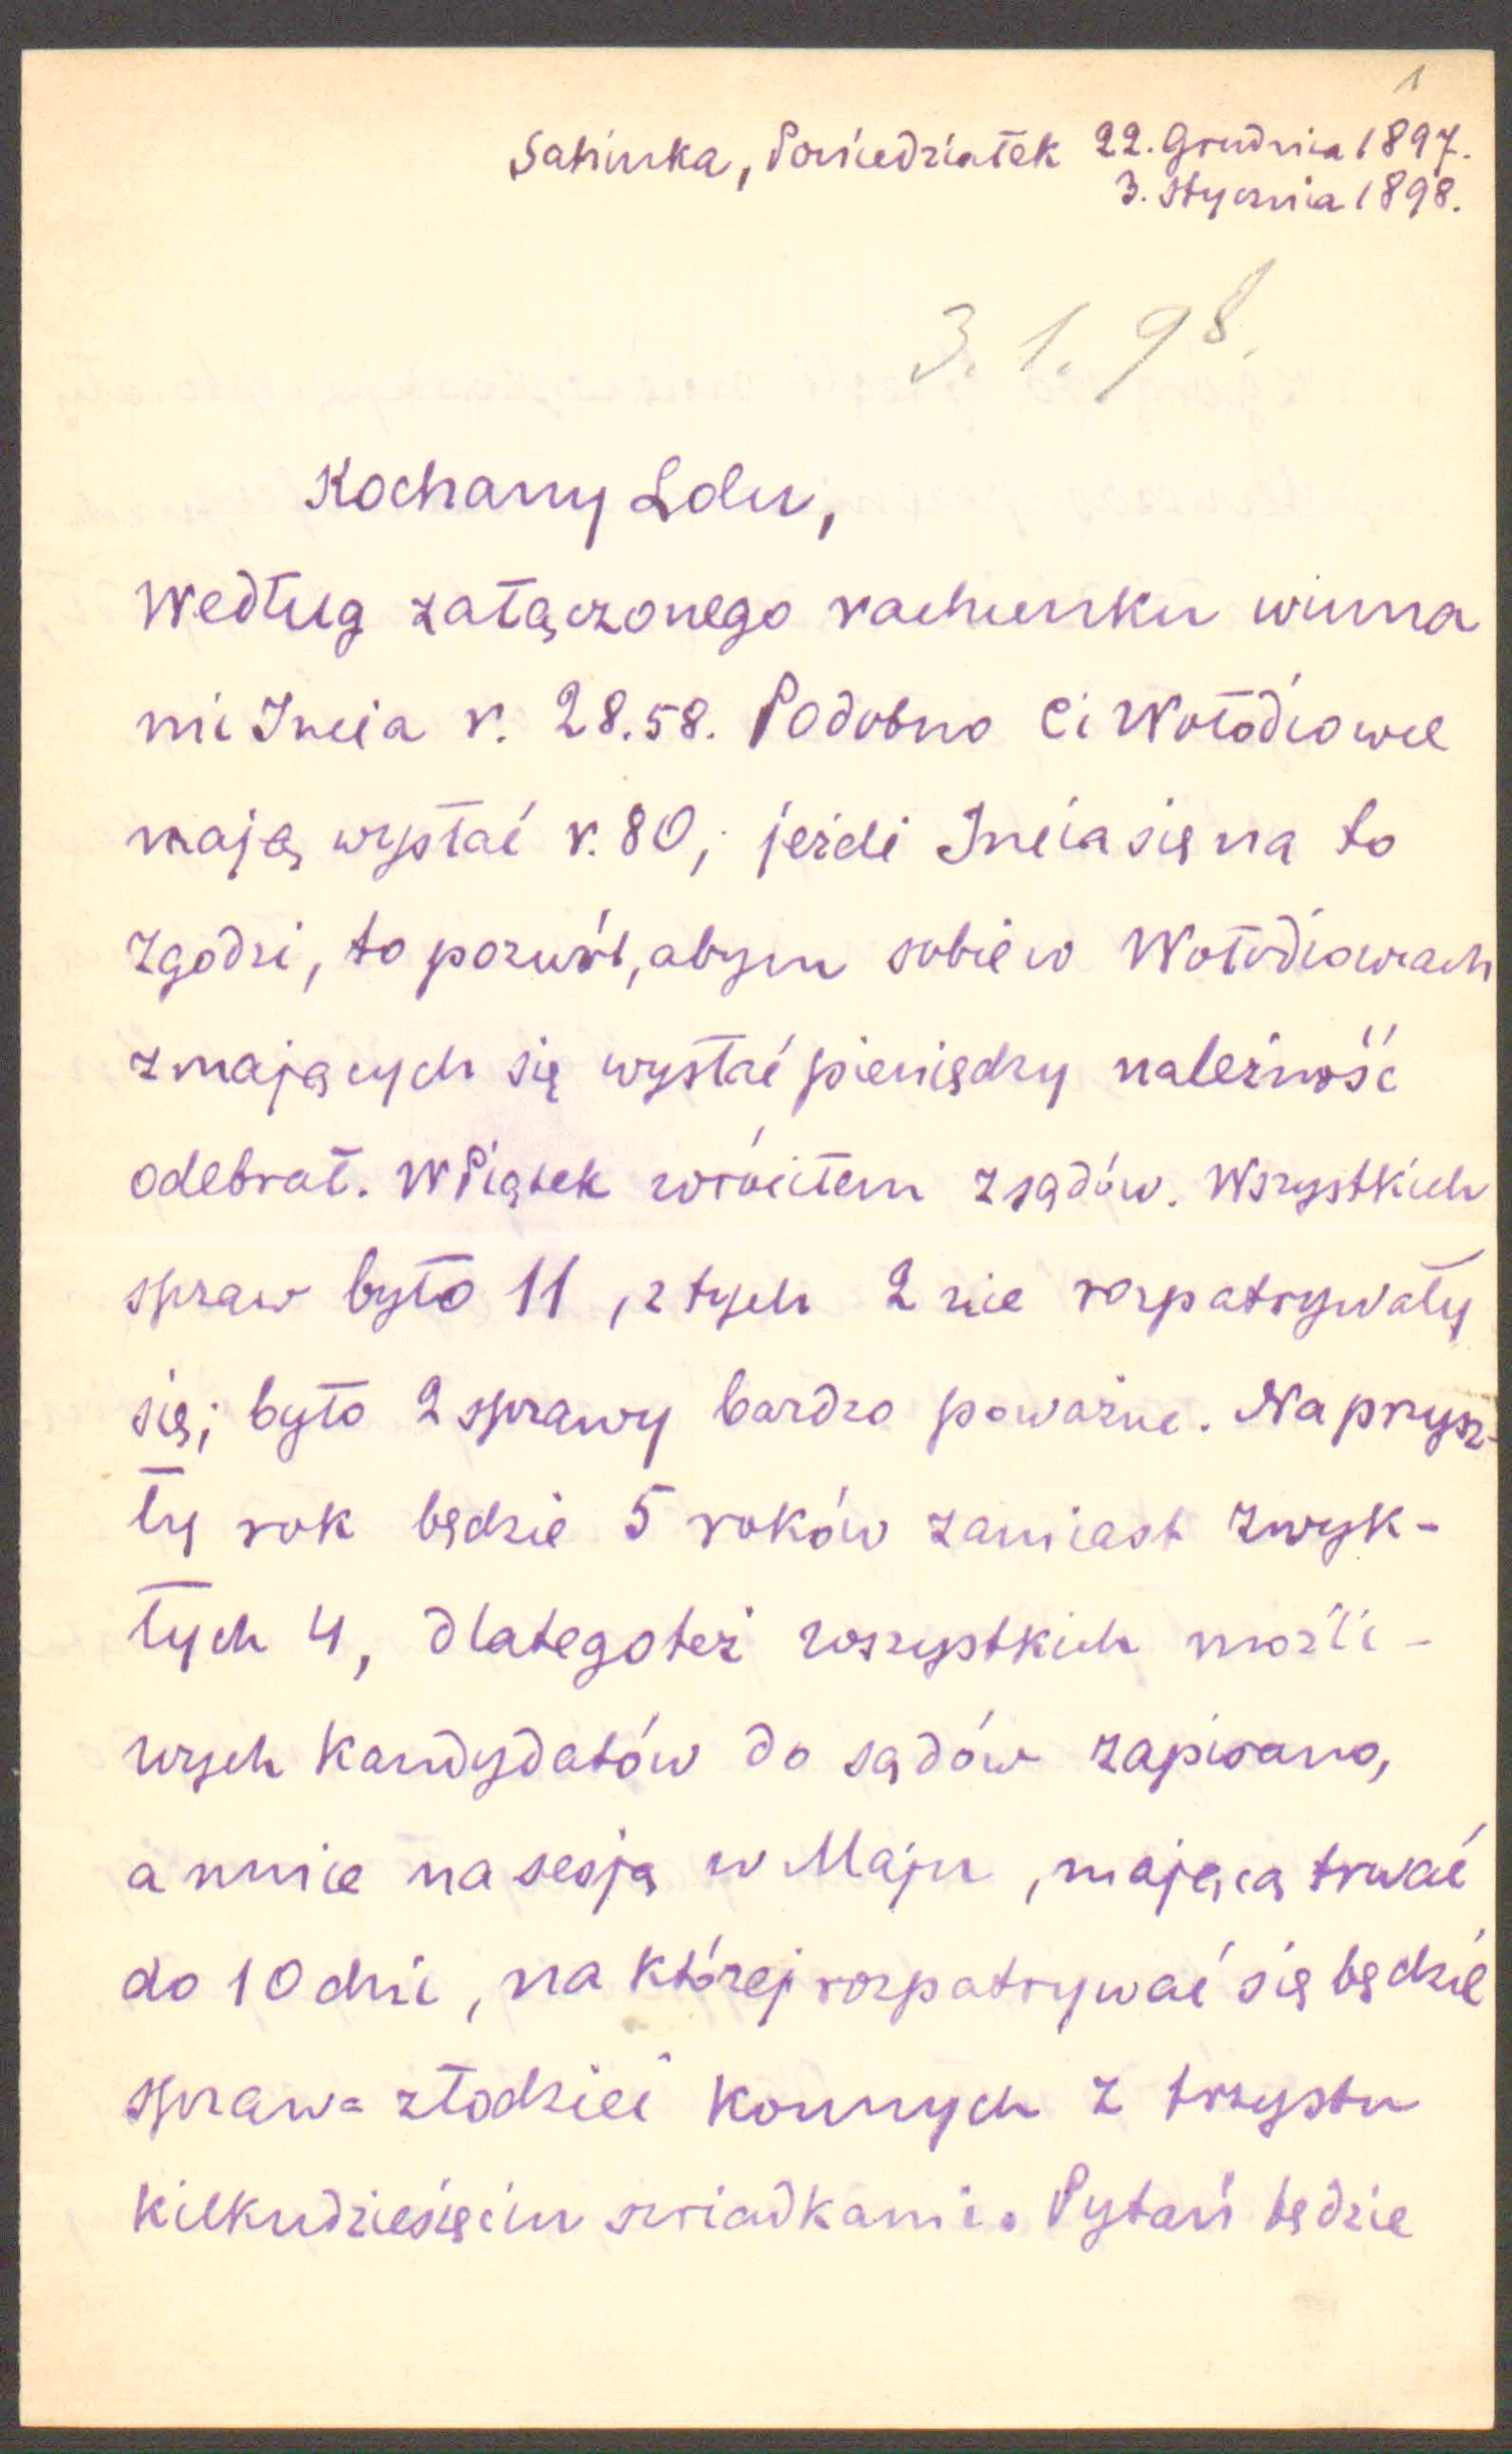 1
Sahinka, Poniedziałek 22. Grudnia 1897.
3. Stycznia 1898.
3. 1. 98.
Kochany Lolu,
Według załączonego rachunku winna
mi Incia r. 28.58. Podobno Ci Wołodiowce
mają wysłać r. 80; jeżeli Incia się na to
zgodzi, to pozwól, abym sobie w Wołodiowcach
z mających się wysłać pieniędzy należność
odebrał. W Piątek wróciłem z sądów. Wszystkich
spraw było 11, z tych 2 nie rozpatrywały
się; było 2 sprawy bardzo poważne. Na przysz-
ły rok będzie 5 roków zamiast zwyk-
łych 4, dlategoteż wszystkich możli-
wych kandydatów do sądów zapisano,
a mnie na sesją w Maju, mającą trwać
do 10 dni, na której rozpatrywać się będzie
sprawa złodziei konnych z trzystu
kilkudziesięciu świadkami. Pytań będzie